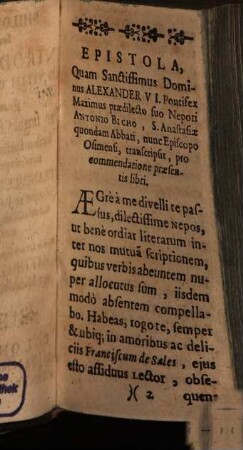 EPISTOLA,
Quam Sanctissimus Domi-
nus ALEXANDER VI. Pontifex
Maximus prædilecto suo Nepoti
ANTONIO BICHO, S. Anastasiæ
quondam Abbati, nunc Episcopo
Osimensi, transcripsit, pro
commendatione præsen-
tis libri.
ÆGrè à me divelli te pas-
sus, dilectissime Nepos,
ut benè ordiat literarum in-
ter nos mutuâ scriptionem,
quibus verbis abeuntem nu-
per allocutus sum, iisdem
modò absentem compella-
bo. Habeas, rogo te, semper
&ubiq; in amoribus ac deli-
ciis Franciscum de Sales, ejus
esto assiduus Lector, obse-
)( 2 quen-